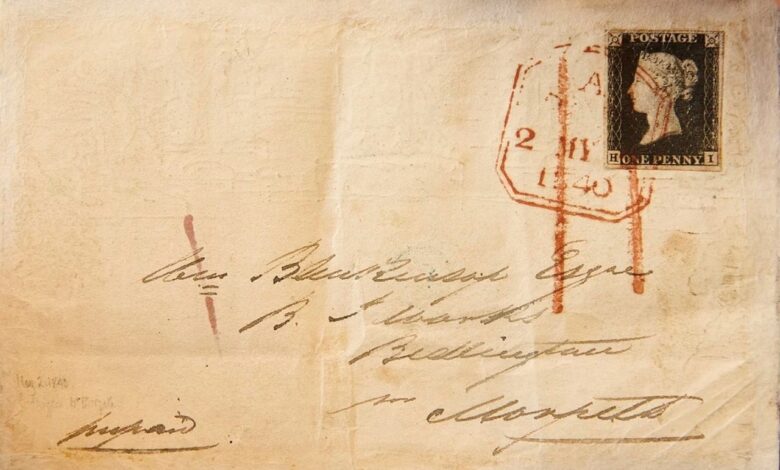 POSTAGE
H ONE PENNY I
A
2 MY
1840
Wm Blenkinsop Esqre
B. I Works
Bedlington
Morpeth
May 2 1840
prepaid